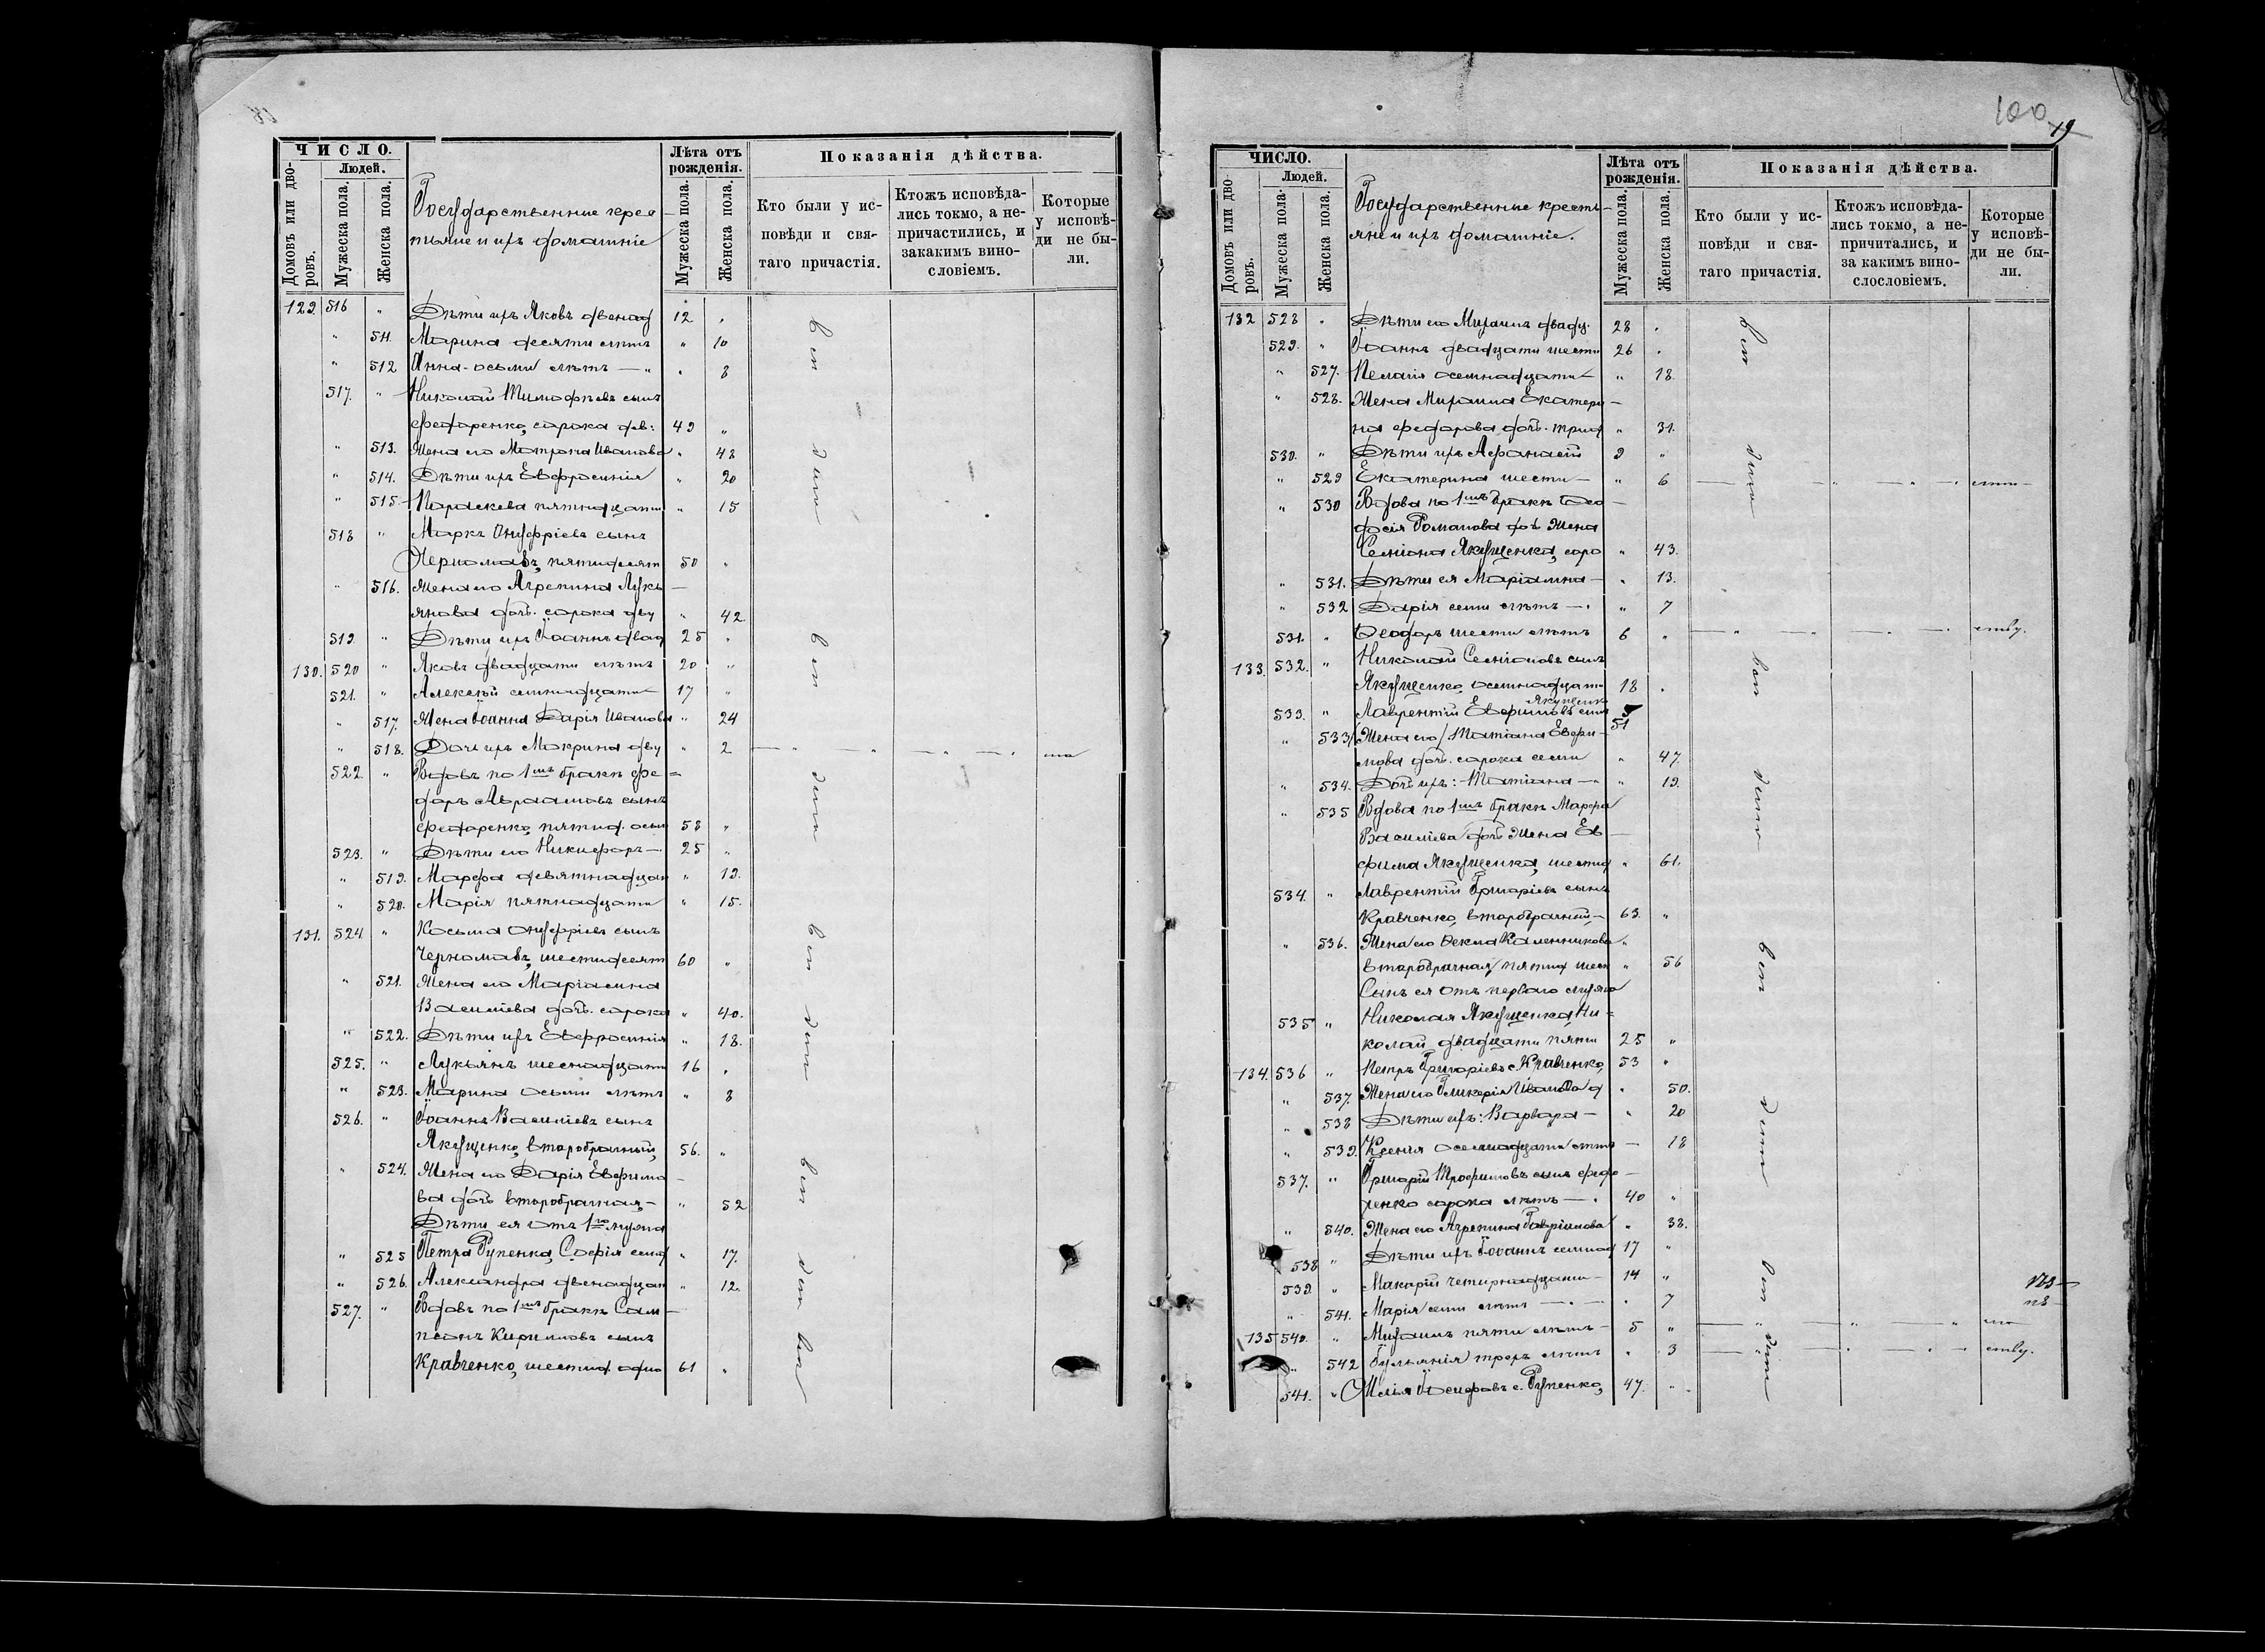 ЧИСЛО.
Домовъ или дворовъ.
Людей.
Мужеска пола.
Женска пола.
Государственные крес
тьяне и ихъ домашніе
Лѣта отъ рожденія.
Мужеска пола.
Женска пола.
Показанія дѣйства.
Кто были у исповѣди и святаго причастія.
Ктожъ исповѣдались токмо, а непричастились, и закакимъ винословіемъ.
Которые у исповѣди не были.
129. 516 " Дѣти ихъ Яковъ двенад 12 "
" 511. Марина десяти лѣтъ " 10
" 512 Анна осьми лѣтъ — " " 8
517. " Николай Тимофѣевъ сынъ
Федоренко, сорока дев: 49 "
" 513. Жена его Матрона Иванова " 48
" 514. Дѣти ихъ Евфросинія " 20
" 515 Параскева пятнадцати " 15
518 " Маркъ Онуфріевъ сынъ
Черномазъ, пятидесят 50 "
" 516. Жена его Агрепина Лукь
янова дочь. сорока дву " 42.
519 " Дѣти ихъ Іоаннъ двад 25 "
130. 520 " Яковъ двадцати лѣтъ 20 "
521. " Алексѣй семнадцати 17 "
" 517. Жена Іоанна Дарія Иванова " 24
" 518. Дочь ихъ Макрина дву " 2
522 " Вдовъ по 1мъ бракѣ Фе=
доръ Авраамовъ сынъ
Федоренко, пятид. осьм 58 "
523. " Дѣти его Никифоръ — 25 "
" 519. Марфа девятнадцат " 19.
" 520. Марія пятнадцати " 15.
131. 524 " Косьма Онуфріевъ сынъ
Черномазъ, шестидесят 60 "
" 521. Жена его Маріамна
Василіева дочь. сорока " 40.
" 522. Дѣти ихъ Евфросинія " 18.
525. " Лукьянъ шеснадцати 16 "
" 523. Марина осьми лѣтъ " 8
526. " Іоаннъ Василіевъ сынъ
Якущенко, второбрачный, 56. "
" 524. Жена его Дарія Евфимо
ва дочь второбрачная, " 52
Дѣти ея отъ 1го мужа
" 525 Петра Рупенка, Софія семнд " 17.
" 526. Александра двенадцат " 12.
527. " Вдовъ по 1мъ бракѣ Сам—
псонъ Кирилловъ сынъ
Кравченко, шестид. одно 61 "
100
19
ЧИСЛО.
Домовъ или дворовъ.
Людей.
Мужеска пола.
Женска пола.
Государственные кресть—
яне и ихъ домашніе.
Лѣта отъ рожденія.
Мужеска пола.
Женска пола.
Показанія дѣйства.
Кто были у исповѣди и святаго причастія.
Ктожъ исповѣдались токмо, а непричитались, и за какимъ винослословіемъ.
Которые у исповѣди не были.
132 528 " Дѣти его Михаилъ двадц. 28 "
529. " Іоаннъ двадцати шести 26 "
" 527. Пелагія осемнадцати " 18.
" 528. Жена Михаила Екатери—
на Федорова дочь. трид " 31.
530. " Дѣти ихъ Афанасій 9 "
" 529 Екатерина шести — " 6
" 530 Вдова по 1мъ бракѣ Ѳео—
досія Романова дочь Жена
Семіона Якущенка, соро " 43.
" 531. Дѣти ея Маріамна — " 13.
" 532 Дарія семи лѣтъ — " " 7
531. " Ѳеодоръ шести лѣтъ 6 "
133. 532. " Николай Семіоновъ сынъ
Якущенко, осемнадцати 18 "
533. " Лаврентій Евфимовъ сынъ Якущенко 51
" 533 Жена его Татіана Евфи—
мова дочь. сорока семи " 47.
" 534. Дочь ихъ: Татіана — " " 19.
" 535 Вдова по 1мъ бракѣ Марфа
Василіева дочь Жена Ев—
фима Якущенка, шестид " 61.
534. " Лаврентій Григоріевъ сынъ
Кравченко, второбрачный — 63. "
" 536. Жена его Ѳекла Калинникова "
второбрачная, пятид шест " 56
Сынъ ея отъ перваго мужа
535 " Николая Якущенка, Ни=
колай двадцати пяти 25 "
134. 536 " Петръ Григоріевъ с. Кравченко, 53 "
" 537. Жена его Гликерія Иванова д " 50.
" 538 Дѣти ихъ: Варвара — " 20
" 539. Ксенія осемнадцати лѣтъ — 18
537. " Григорій Трофимовъ сынъ Федо—
ренко сорока лѣтъ — " 40 "
" 540. Жена его Агрепина Гавріилова " 38.
538 " Дѣти ихъ Іоаннъ семнад 17 "
539. " Макарій четырнадцати — 14 "
" 541. Марія семи лѣтъ — " — " 7
135 540. " Михаилъ пяти лѣтъ — 5 "
" 542 Іульянія трехъ лѣтъ " 3
541. " Илія Іосифовъ с. Рупенко, 47. "